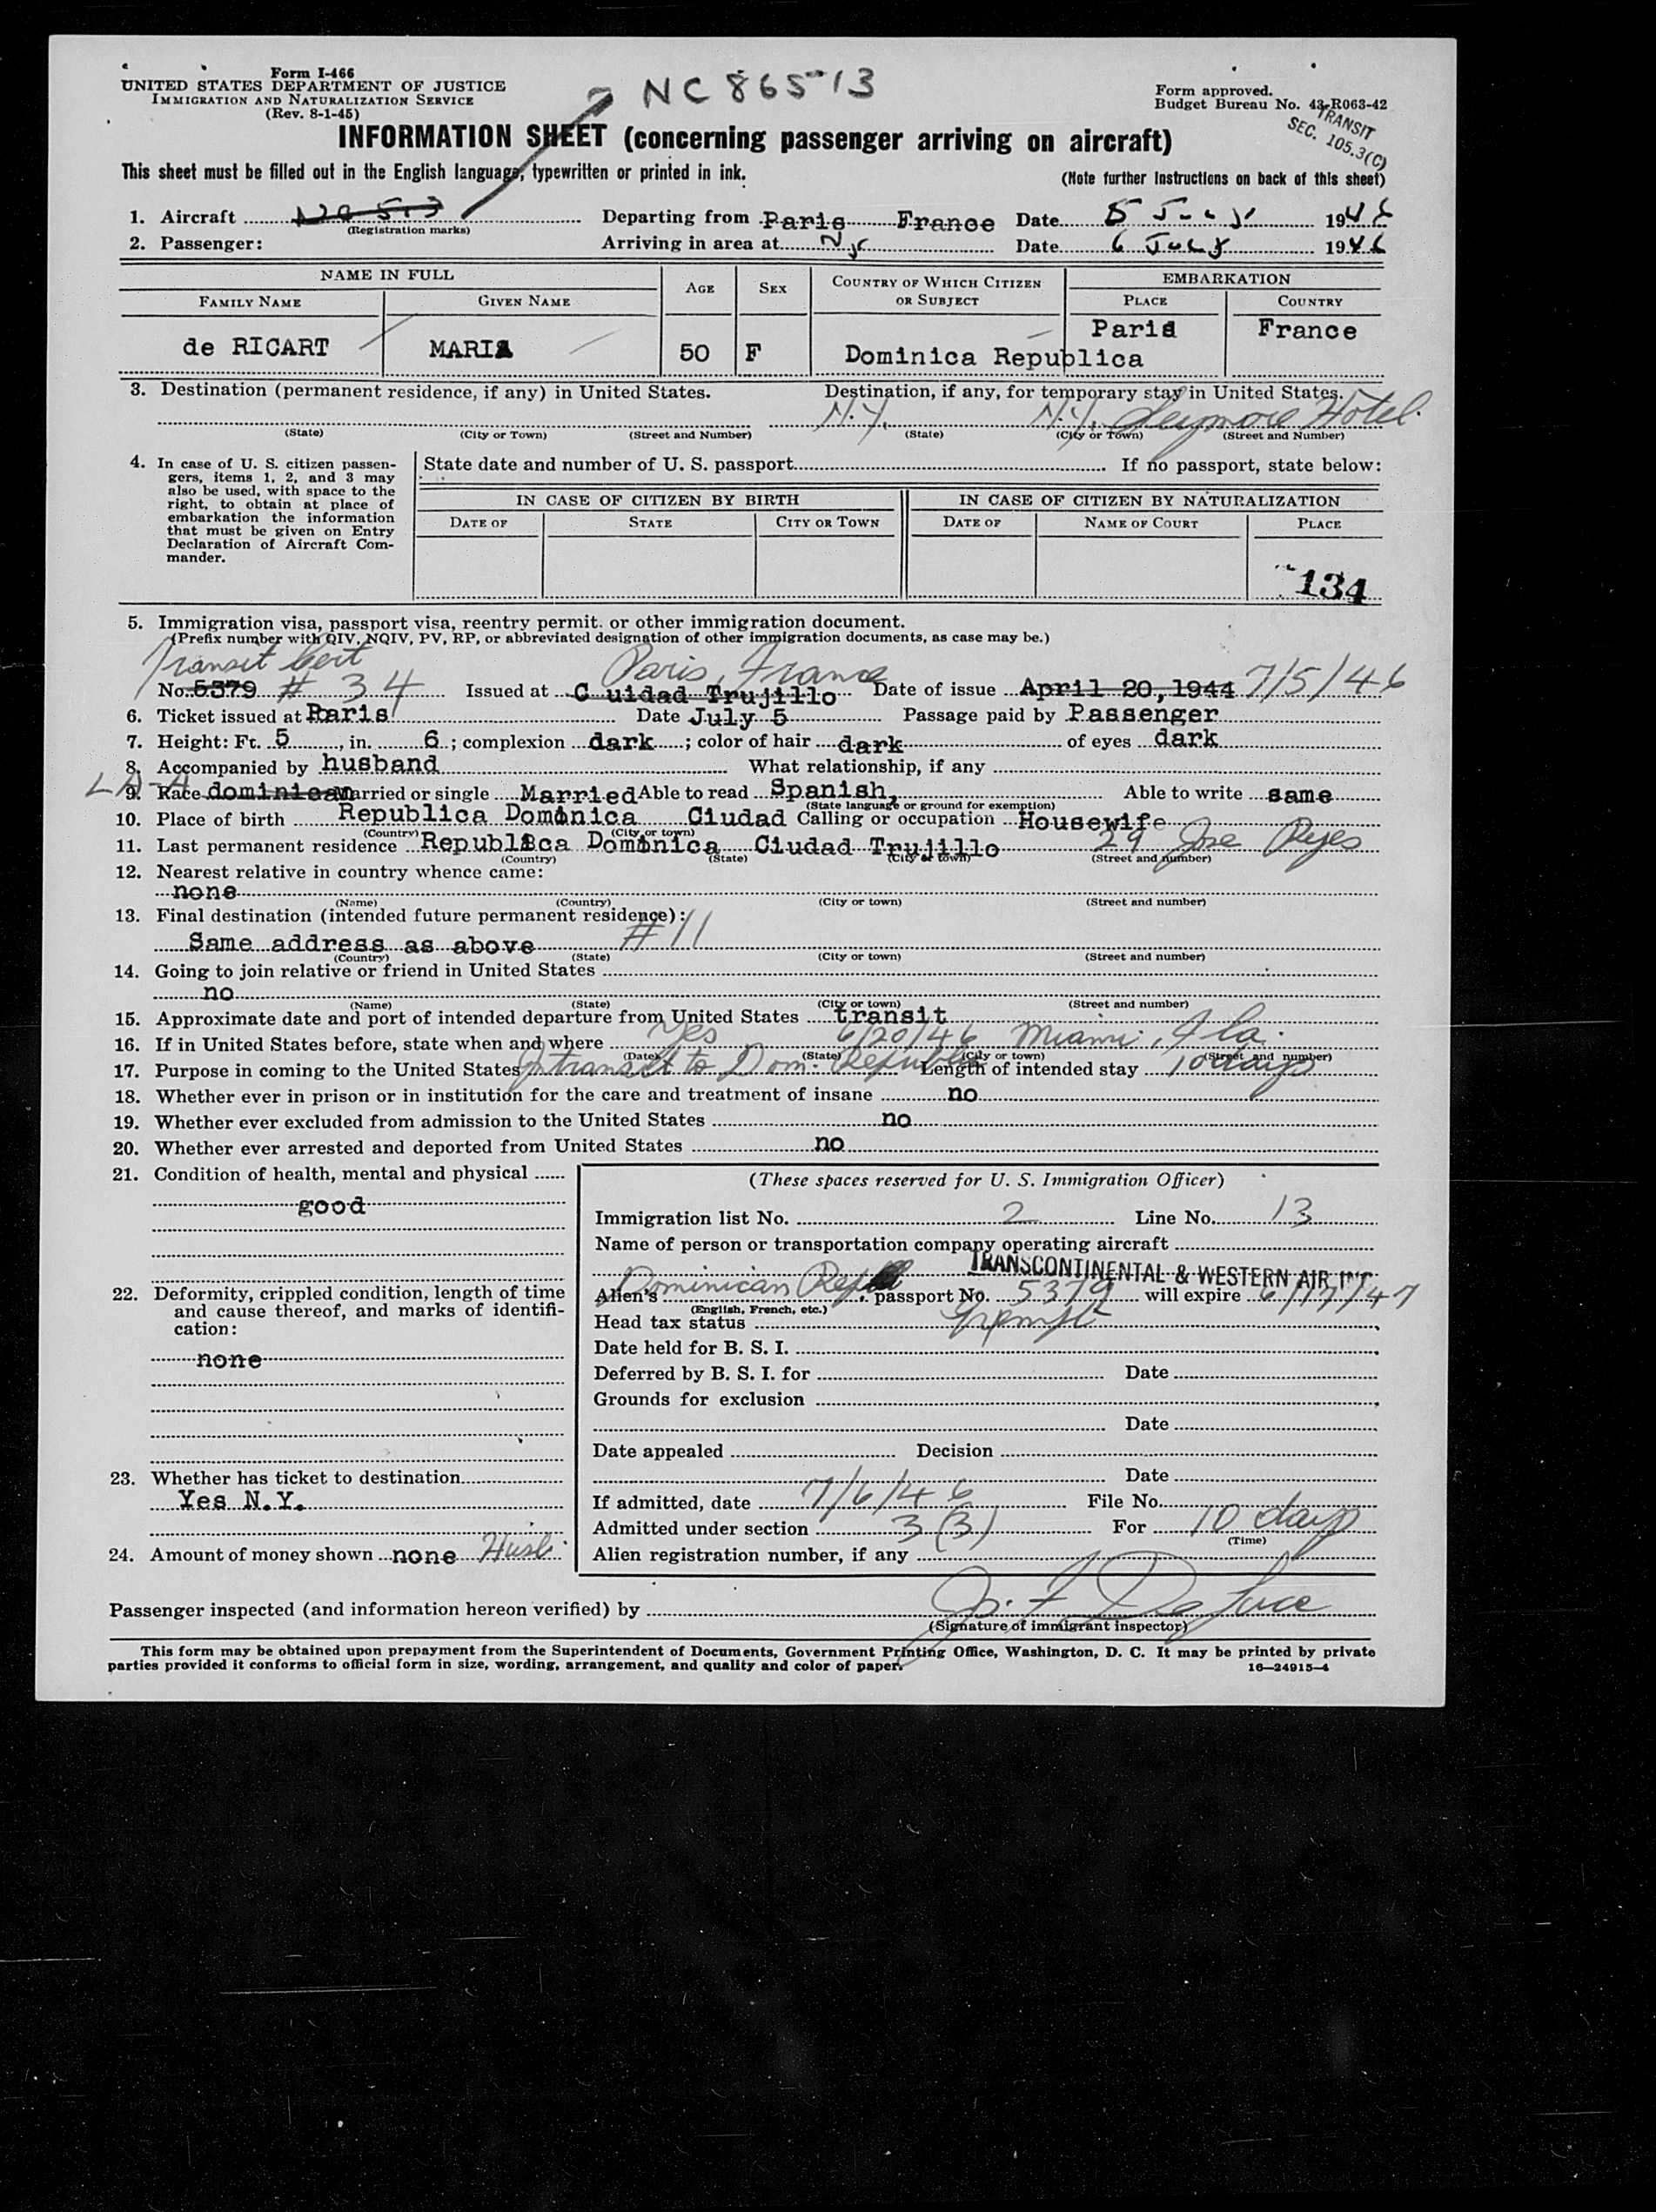 Form I-466
UNITED STATES DEPARTMENT OF JUSTICE
IMMIGRATION AND NATURALIZATION SERVICE
(Rev. 8-1-45)
NC 86513
Form approved.
Budget Bureau No. 43-R063-42
TRANSIT
SEC. 105.3(C)
INFORMATION SHEET (concerning passenger arriving on aircraft)
This sheet must be filled out in the English language, typewritten or printed in ink.
(Note further instructions on back of this sheet)
1. Aircraft Departing from Paris France Date 5 July 1946
(Registration marks)
2. Passenger: Arriving in area at NY Date 6 July 1946
NAME IN FULL AGE SEX COUNTRY OF WHICH CITIZEN OR SUBJECT EMBARKATION
FAMILY NAME GIVEN NAME PLACE COUNTRY
de RICART MARIA 50 F Dominica Republica Paris France
3. Destination (permanent residence, if any) in United States. Destination, if any, for temporary stay in United States.
N.Y. N.Y. Seymore Hotel
(State) (City or Town) (Street and Number) (State) (City or Town) (Street and Number)
4. In case of U. S. citizen passen-
gers, items 1, 2, and 3 may
also be used, with space to the
right, to obtain at place of
embarkation the information
that must be given on Entry
Declaration of Aircraft Com-
mander.
State date and number of U. S. passport. If no passport, state below:
IN CASE OF CITIZEN BY BIRTH IN CASE OF CITIZEN BY NATURALIZATION
DATE OF STATE CITY OR TOWN DATE OF NAME OF COURT PLACE
134
5. Immigration visa, passport visa, reentry permit. or other immigration document.
(Prefix number with QIV, NQIV, PV, RP, or abbreviated designation of other immigration documents, as case may be.)
Transit Cert Paris, France
No. 5379 # 34 Issued at C uidad Trujillo Date of issue April 20, 1944 7/5/46
6. Ticket issued at Paris Date July 5 Passage paid by Passenger
7. Height: Ft. 5, in. 6; complexion dark; color of hair dark of eyes dark
8. Accompanied by husband What relationship, if any
9. Race dominican Married or single Married Able to read Spanish, Able to write same
(State language or ground for exemption)
10. Place of birth Republica Dominica Ciudad Calling or occupation Housewife
(Country) (City or town)
11. Last permanent residence Republica Dominica Ciudad Trujillo 29 Jose Reyes
(Country) (State) (City or town) (Street and number)
12. Nearest relative in country whence came:
none
(Name) (Country) (City or town) (Street and number)
13. Final destination (intended future permanent residence):
Same address as above #11
(Country) (State) (City or town) (Street and number)
14. Going to join relative or friend in United States
no
(Name) (State) (City or town) (Street and number)
15. Approximate date and port of intended departure from United States transit
16. If in United States before, state when and where Yes 6/20/46 Miami, Fla.
(Date) (State) (City or town) (Street and number)
17. Purpose in coming to the United States Intransit to Dom. Republic Length of intended stay 10 days
18. Whether ever in prison or in institution for the care and treatment of insane no
19. Whether ever excluded from admission to the United States no
20. Whether ever arrested and deported from United States no
21. Condition of health, mental and physical
good
22. Deformity, crippled condition, length of time
and cause thereof, and marks of identifi-
cation:
none
23. Whether has ticket to destination
Yes N.Y.
24. Amount of money shown none Husb.
(These spaces reserved for U. S. Immigration Officer)
Immigration list No. 2 Line No. 13
Name of person or transportation company operating aircraft
TRANSCONTINENTAL & WESTERN AIR INC.
Alien's Dominican Rep passport No. 5379 will expire 6/17/47
(English, French, etc.)
Head tax status Exempt
Date held for B. S. I.
Deferred by B. S. I. for Date
Grounds for exclusion
Date
Date appealed Decision
Date
If admitted, date 7/6/46 File No.
Admitted under section 3(3) For 10 days
(Time)
Alien registration number, if any
Passenger inspected (and information hereon verified) by
(Signature of immigrant inspector)
This form may be obtained upon prepayment from the Superintendent of Documents, Government Printing Office, Washington, D. C. It may be printed by private
parties provided it conforms to official form in size, wording, arrangement, and quality and color of paper.
16—24915-4